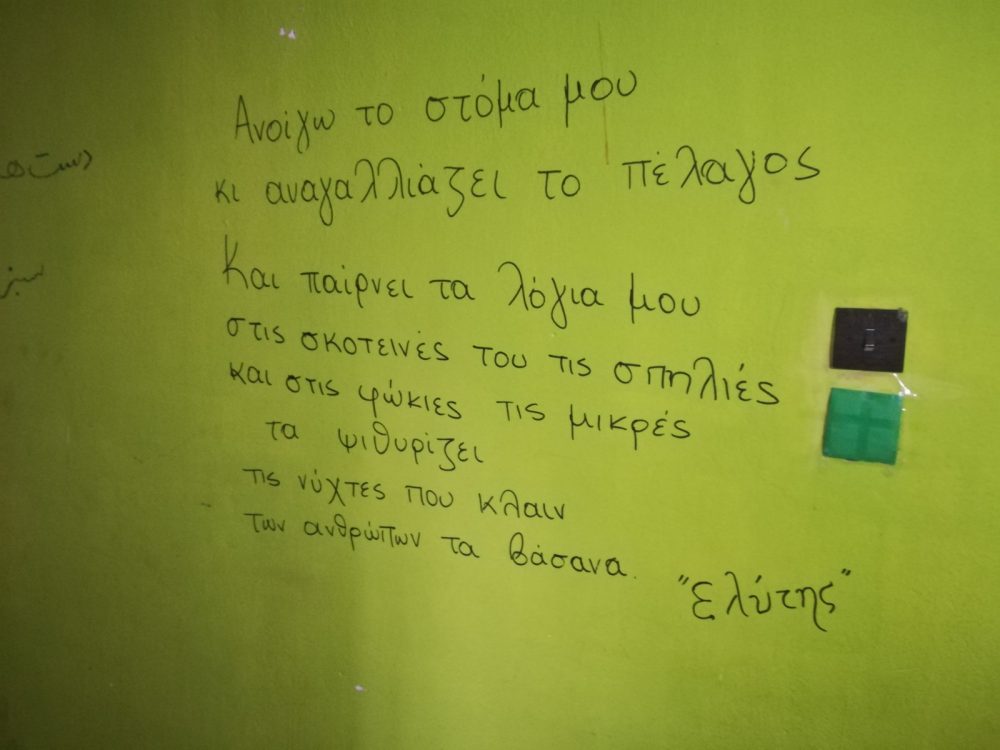 Ανοίγω το στόμα μου
κι αναγαλλιάζει το πέλαγος
Και παίρνει τα λόγια μου
στις σκοτεινές του τις σπηλιές
και στις φώκιες τις μικρές
τα ψιθυρίζει
τις νύχτες που κλαιν
των ανθρώπων τα βάσανα.
"Ελύτης"